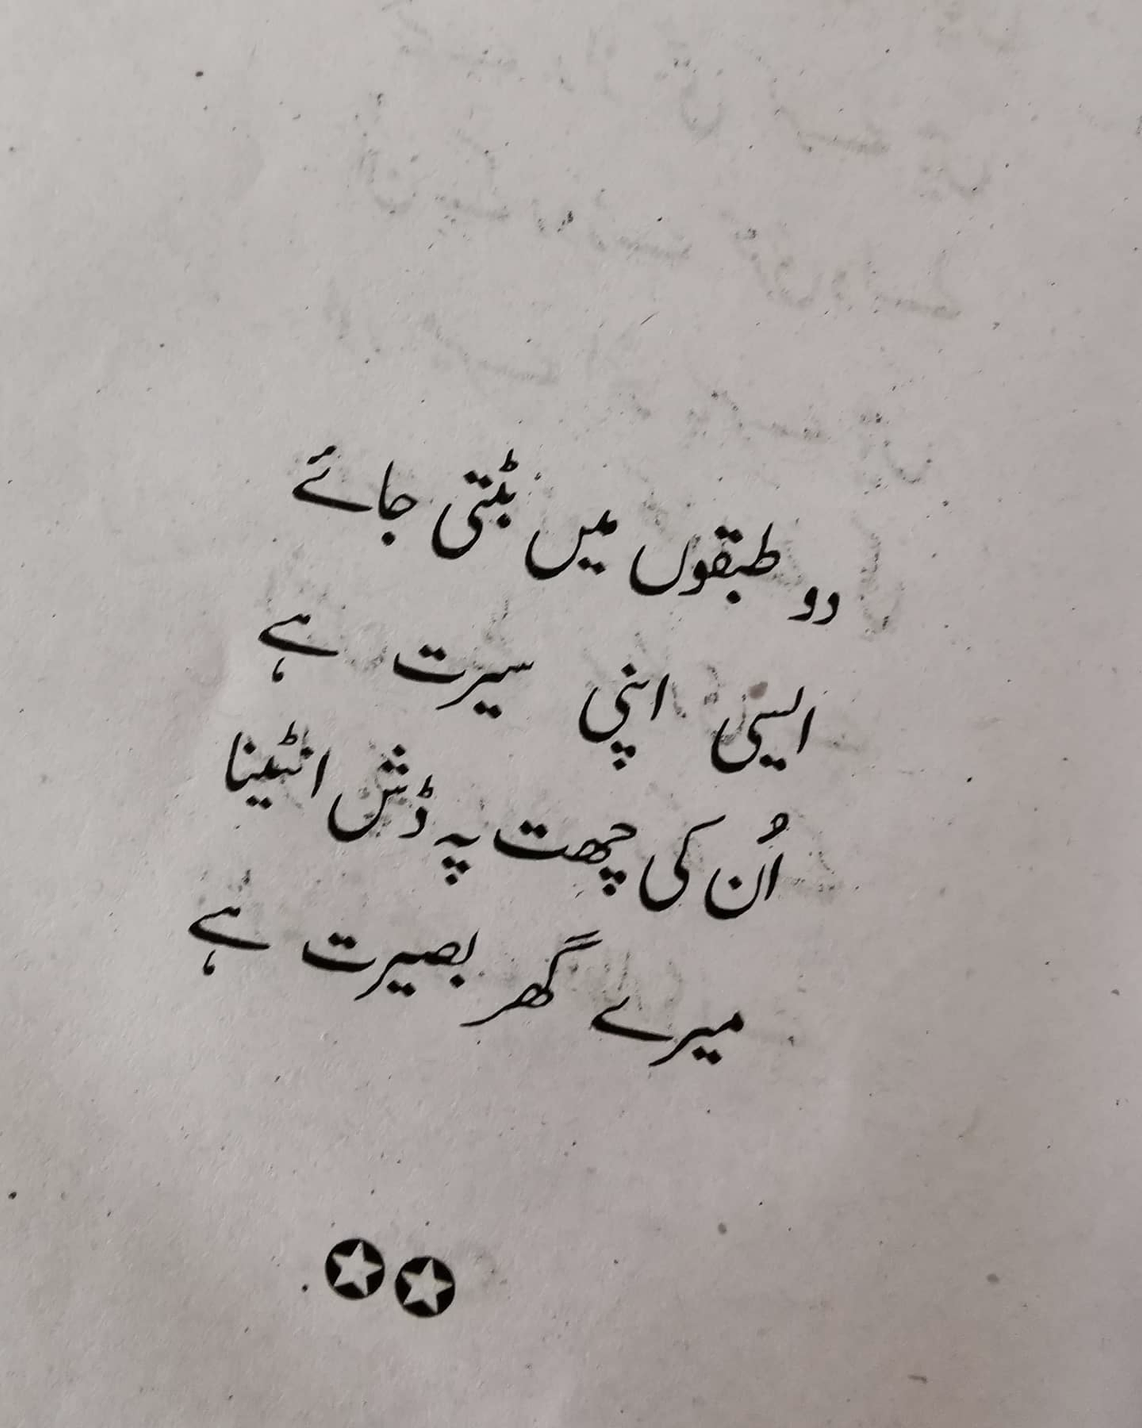 دو طبقوں میں بٹتی جائے
ایسی اپنی سیرت ہے
اُن کی چھت پہ ڈش انٹینا
میرے گھر بصیرت ہے